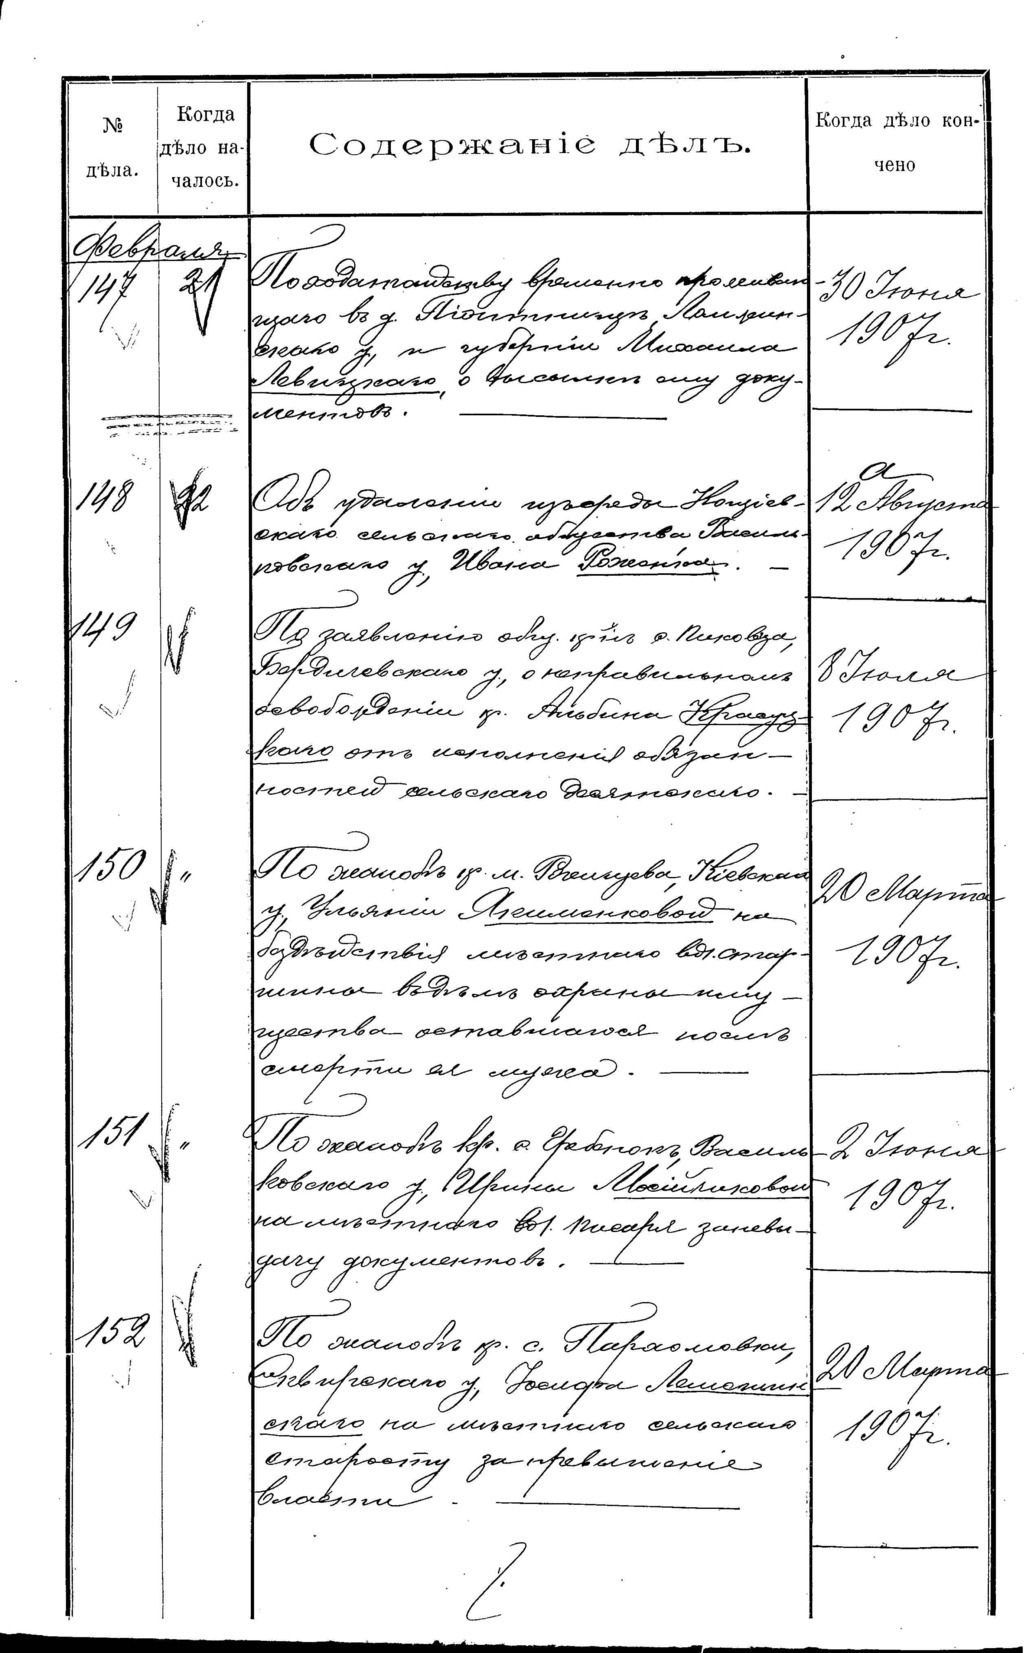 № дѣла.
Когда дѣло на-
чалось.
Содержаніе дѣлъ.
Когда дѣло кон-
чено
Февраля
147 21 По ходатайству временно проживаю-
щаго въ д.
скаго у, и губерніи Михаила
Левицкаго, о высылкѣ ему доку-
ментовъ.
30 Іюня
1907г.
148 22 Объ удаленіи изъ среды
скаго сельскаго общества Василь-
ковскаго у, Ивана Роженка. —
12 Августа
1907г.
149 По заявленію общ. кр-нъ с. Пиковца,
Бердичевскаго у, о неправильномъ
освобожденіи кр. Альбина Красуц-
каго отъ исполненія обязан-
ностей сельскаго десятскаго. —
8 Іюля
1907г.
150 " По жалобѣ кр. м. Ржищева, Кіевскаго
у, Ульяніи Якименковой на
бездѣйствія мѣстнаго вол. стар-
шины въ дѣлѣ охраны иму-
щества оставшагося послѣ
смерти ея мужа.
20 Марта
1907г.
151 " По жалобѣ кр. с. Гребенокъ, Василь-
ковскаго у, Ирины
на мѣстнаго вол. писаря за невы-
дачу документовъ.
2 Іюня
1907г.
152 По жалобѣ кр. с.
Сквирскаго у, Іосифа
скаго на мѣстнаго сельскаго
старосту за превышеніе
власти.
20 Марта
1907г.